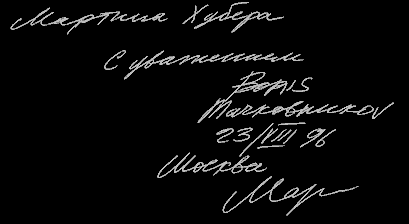 Мартина Хубера
С уважением
Boris
Тачковников
23/VIII 96
Москва
Мар